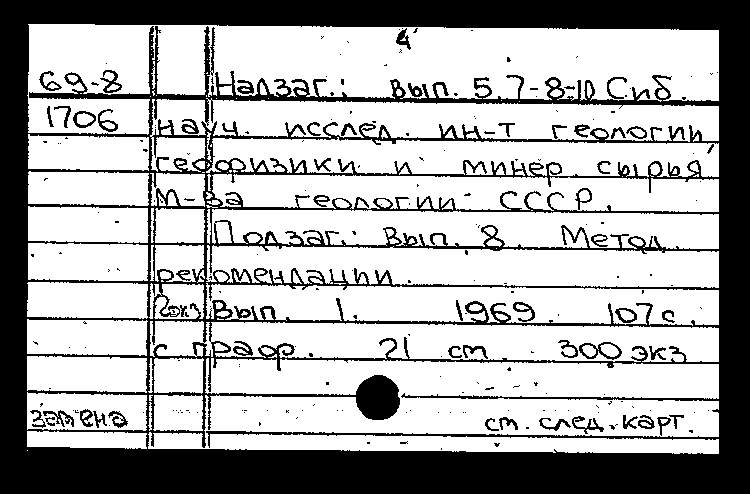 4
69-8 Надзаг.: вып. 5,7-8-10 Сиб.
1706 науч. исслед. ин-т геологии,
геофизики и минер. сырья
М-ва геологии СССР.
Подзаг.: Вып. 8. Метод.
рекомендации.
2экз Вып. 1. 1969. 107 с.
с граф. 21 см. 300 экз
замена ст. след. карт.